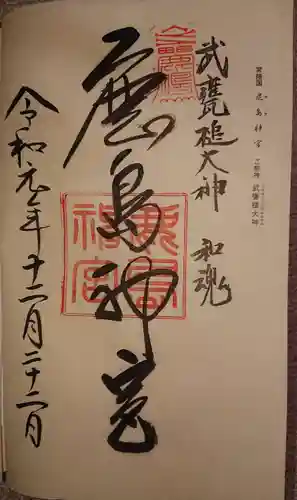 常陸国 鹿島神宮 ご祭神 武甕槌大神
武甕槌大神 和魂
鹿島神宮
鹿島神宮
令和元年十二月二十二日